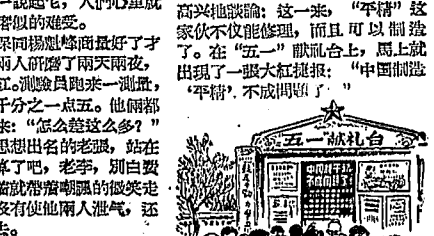 一說起它，人們心里就
密似的难受。
保同杨魁峰商量好了才
兩人研磨了兩天兩夜，
江。測驗員跑来一測量，
千分之一点五。他倆都
来：“怎么差这么多？”
思想出名的老張，站在
算了吧，老李，別白費
着就帶着嘲諷的微笑走
沒有使他兩人泄气，还
去。
高兴地談論：这一来，“平精”这
家伙不仅能修理，而且可以制造
了。在“五一”献礼台上，馬上就
出現了一張大紅捷报：“中国制造
‘平精’，不成問題了。”
五一献礼台